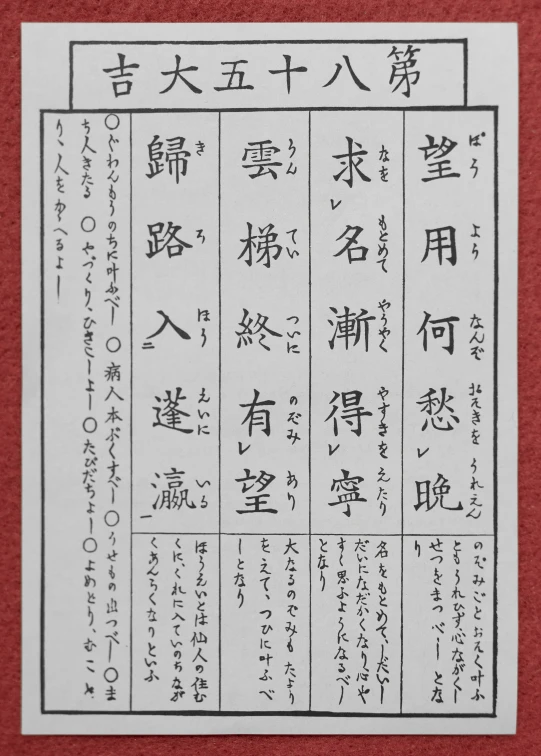 第八十五大吉
望用何愁晩
ばう より なんぞ おそきを うれえん
のぞみごとおそく叶ふ
ともうれひず、心ながくし
せつをまつべし とな
り
求名漸得寧
なを もとめて やうやく やすきを えたり
名をもとめて、しだいし
だいになだかくなり、心や
すく思ふようになるべし
となり
雲梯終有望
うん てい ついに のぞみ あり
大なるのぞみも たより
をえて、つひに叶ふべ
しとなり
歸路入二蓬瀛一
き ろ ほう えいに いる
ほうえいとは仙人の住む
くに、くれに入ていのちなが
くあんらくなりといふ
〇ぐわんもうのちに叶ふべし 〇病人本ぷくすべし 〇うせもの出づべし 〇ま
ち人きたる 〇やづくり、ひきこしよし 〇たびだちよし 〇よめとり、むこと
り、人をかゝへるよし